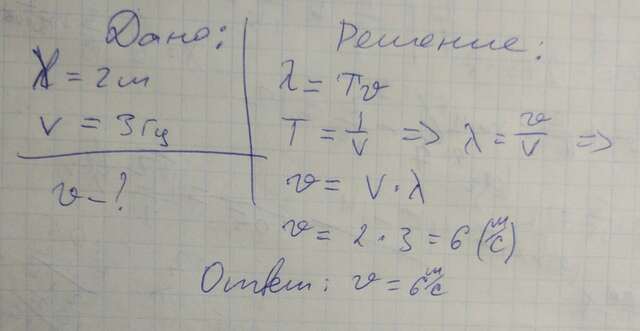 Дано:
λ = 2м
ν = 3Гц
v – ?
Решение:
λ = Tv
T = 1/ν => λ = v/ν =>
v = ν · λ
v = 2 · 3 = 6 (м/с)
Ответ: v = 6 м/с